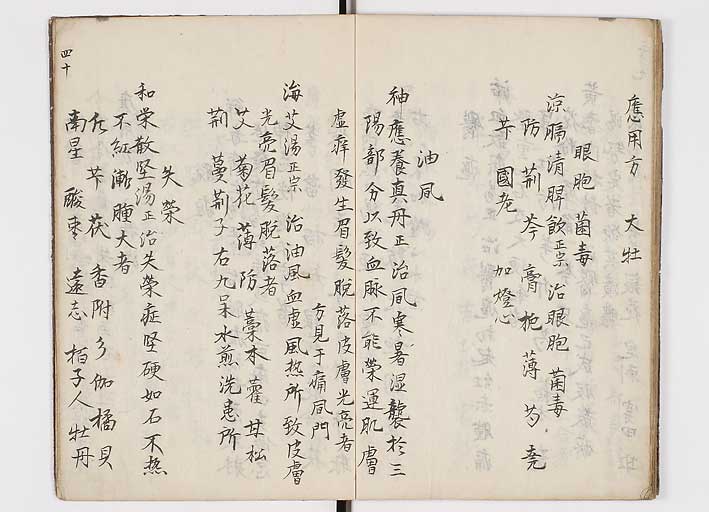 應用方 大牡
眼胞菌毒
涼膈清脾飲正宗治眼胞菌毒
防荆芩膏梔薄芍堯
芐國老 加燈心
油風
神應養真丹正治風寒暑湿襲於三
陽部分以致血脉不能榮運肌膚
虚痒發生眉髮脱落皮膚光亮者
方見于痛風門
海艾湯正宗 治油風血虚風热所致皮膚
光亮眉髮脱落者
艾 菊花 薄 防 藁本 藿 甘松
荆 蔓荆子 右九味水煎洗患所
失榮
和栄散堅湯正治失榮症堅硬如石不热
不紅漸腫大者
芐茯 香附 伽橘貝
南星 酸棗 遠志 栢子人 牡丹
四十